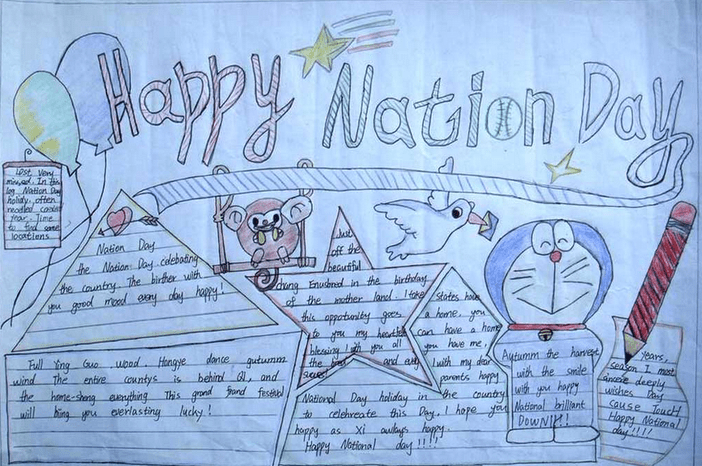 Happy Nation Day
Lost Very
missed. In this
log Nation Day
holidy, often
recalled
fear. Time
to find some
locations
Nation Day
the Nation Day celebrating
the country. The birther with
you good mood every day happy!
just
off the
beautiful
chang Enusbred in the birthday
of the mother land. I take
this oppatunity goes
to you my heartfelt
blessing I wish you all
the and
States have
a home. you
can have a home
you have me,
I with my dear
parents happy
Full Ying Guo wood. Hongye dance gutumm
wind the entire countys is behind QI, and
the home-sheng everything This grand grand festibal
will bing you everlasting lucky!
National Day holiday in the country
to celebreate this Day. I hope you
happy as Xi aulways happy.
Happy National day !!!!
Autumm the harvest
with the smile
with you happy
National brilliant
DOWN!!!
Years,
season I most
sincere deeply
wishes Day
cause Touch
Happy National
day!!!!